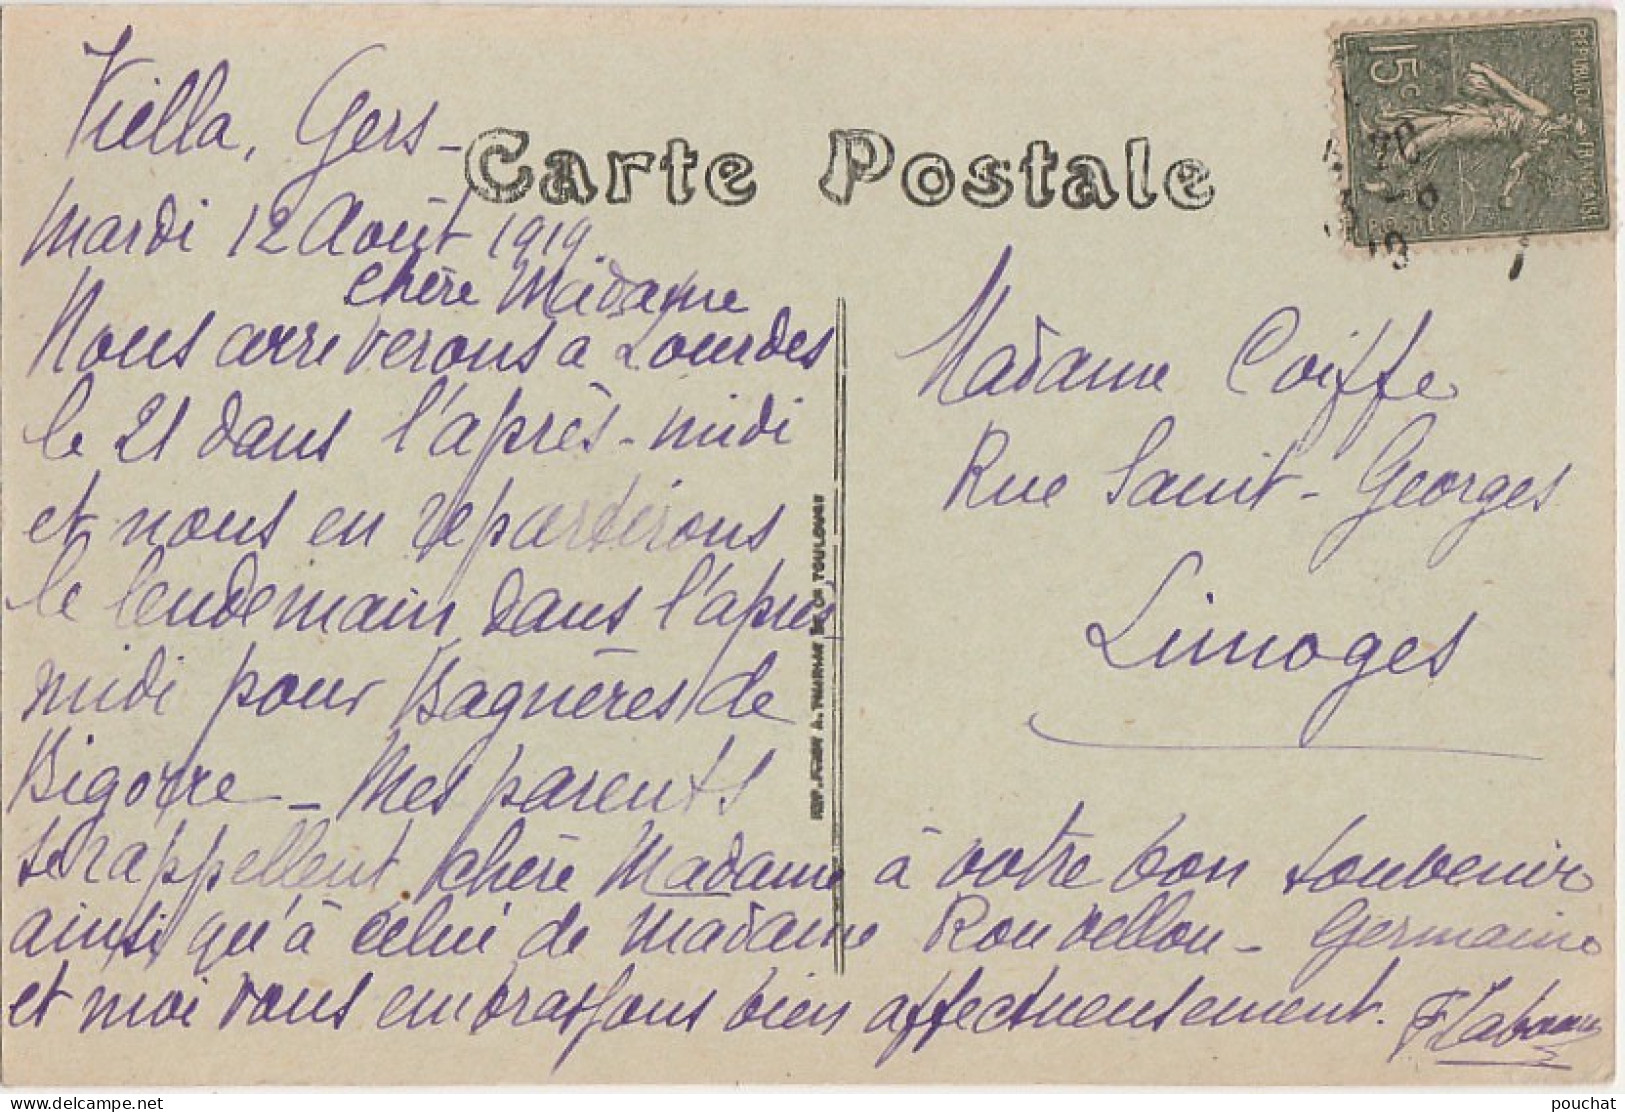 Viella, Gers -
Carte Postale
Mardi 12 Août 1919
chère Madame
Nous arriverons à Lourdes
le 21 dans l'après-midi
et nous en repartirons
le lendemain dans l'après
midi pour Bagnères de
Bigorre - Mes parents
se rappellent, chère Madame à votre bon souvenir
ainsi qu'à celui de Madame Rouvellou - Germaine
et moi vous embrassons bien affectueusement.
Madame Coiffe
Rue Saint-Georges
Limoges
15c
REPUBLIQUE FRANÇAISE
POSTES
TOULOUSE
pouchat
delcampe.net